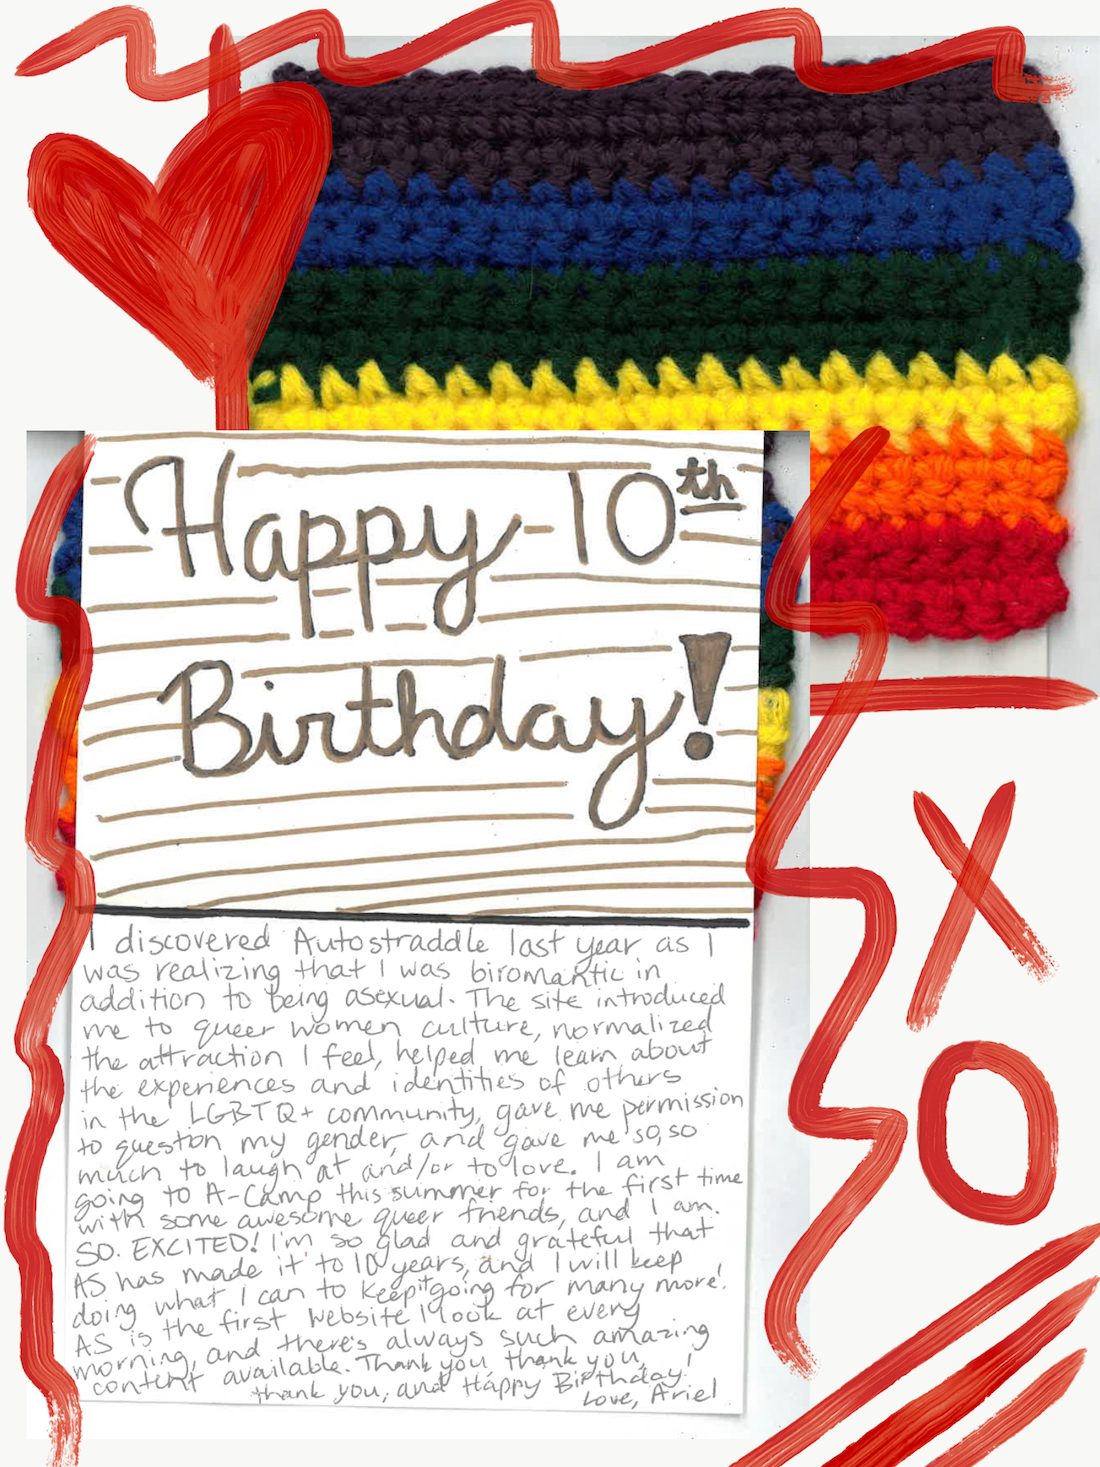 Happy 10th
Birthday!
I discovered Autostraddle last year as I
was realizing that I was biromantic in
addition to being asexual. The site introduced
me to queer women culture, normalized
the attraction I feel, helped me learn about
the experiences and identities of others
in the LGBTQ+ community, gave me permission
to question my gender, and gave me so, so
much to laugh at and/or to love. I am
going to A-Camp this summer for the first time
with some awesome queer friends, and I am.
SO. EXCITED! I'm so glad and grateful that
AS has made it to 10 years, and I will keep
doing what I can to keep it going for many more!
AS is the first website I look at every
morning, and there's always such amazing
content available. Thank you, thank you,
thank you, and Happy Birthday!
Love, Ariel
X
O